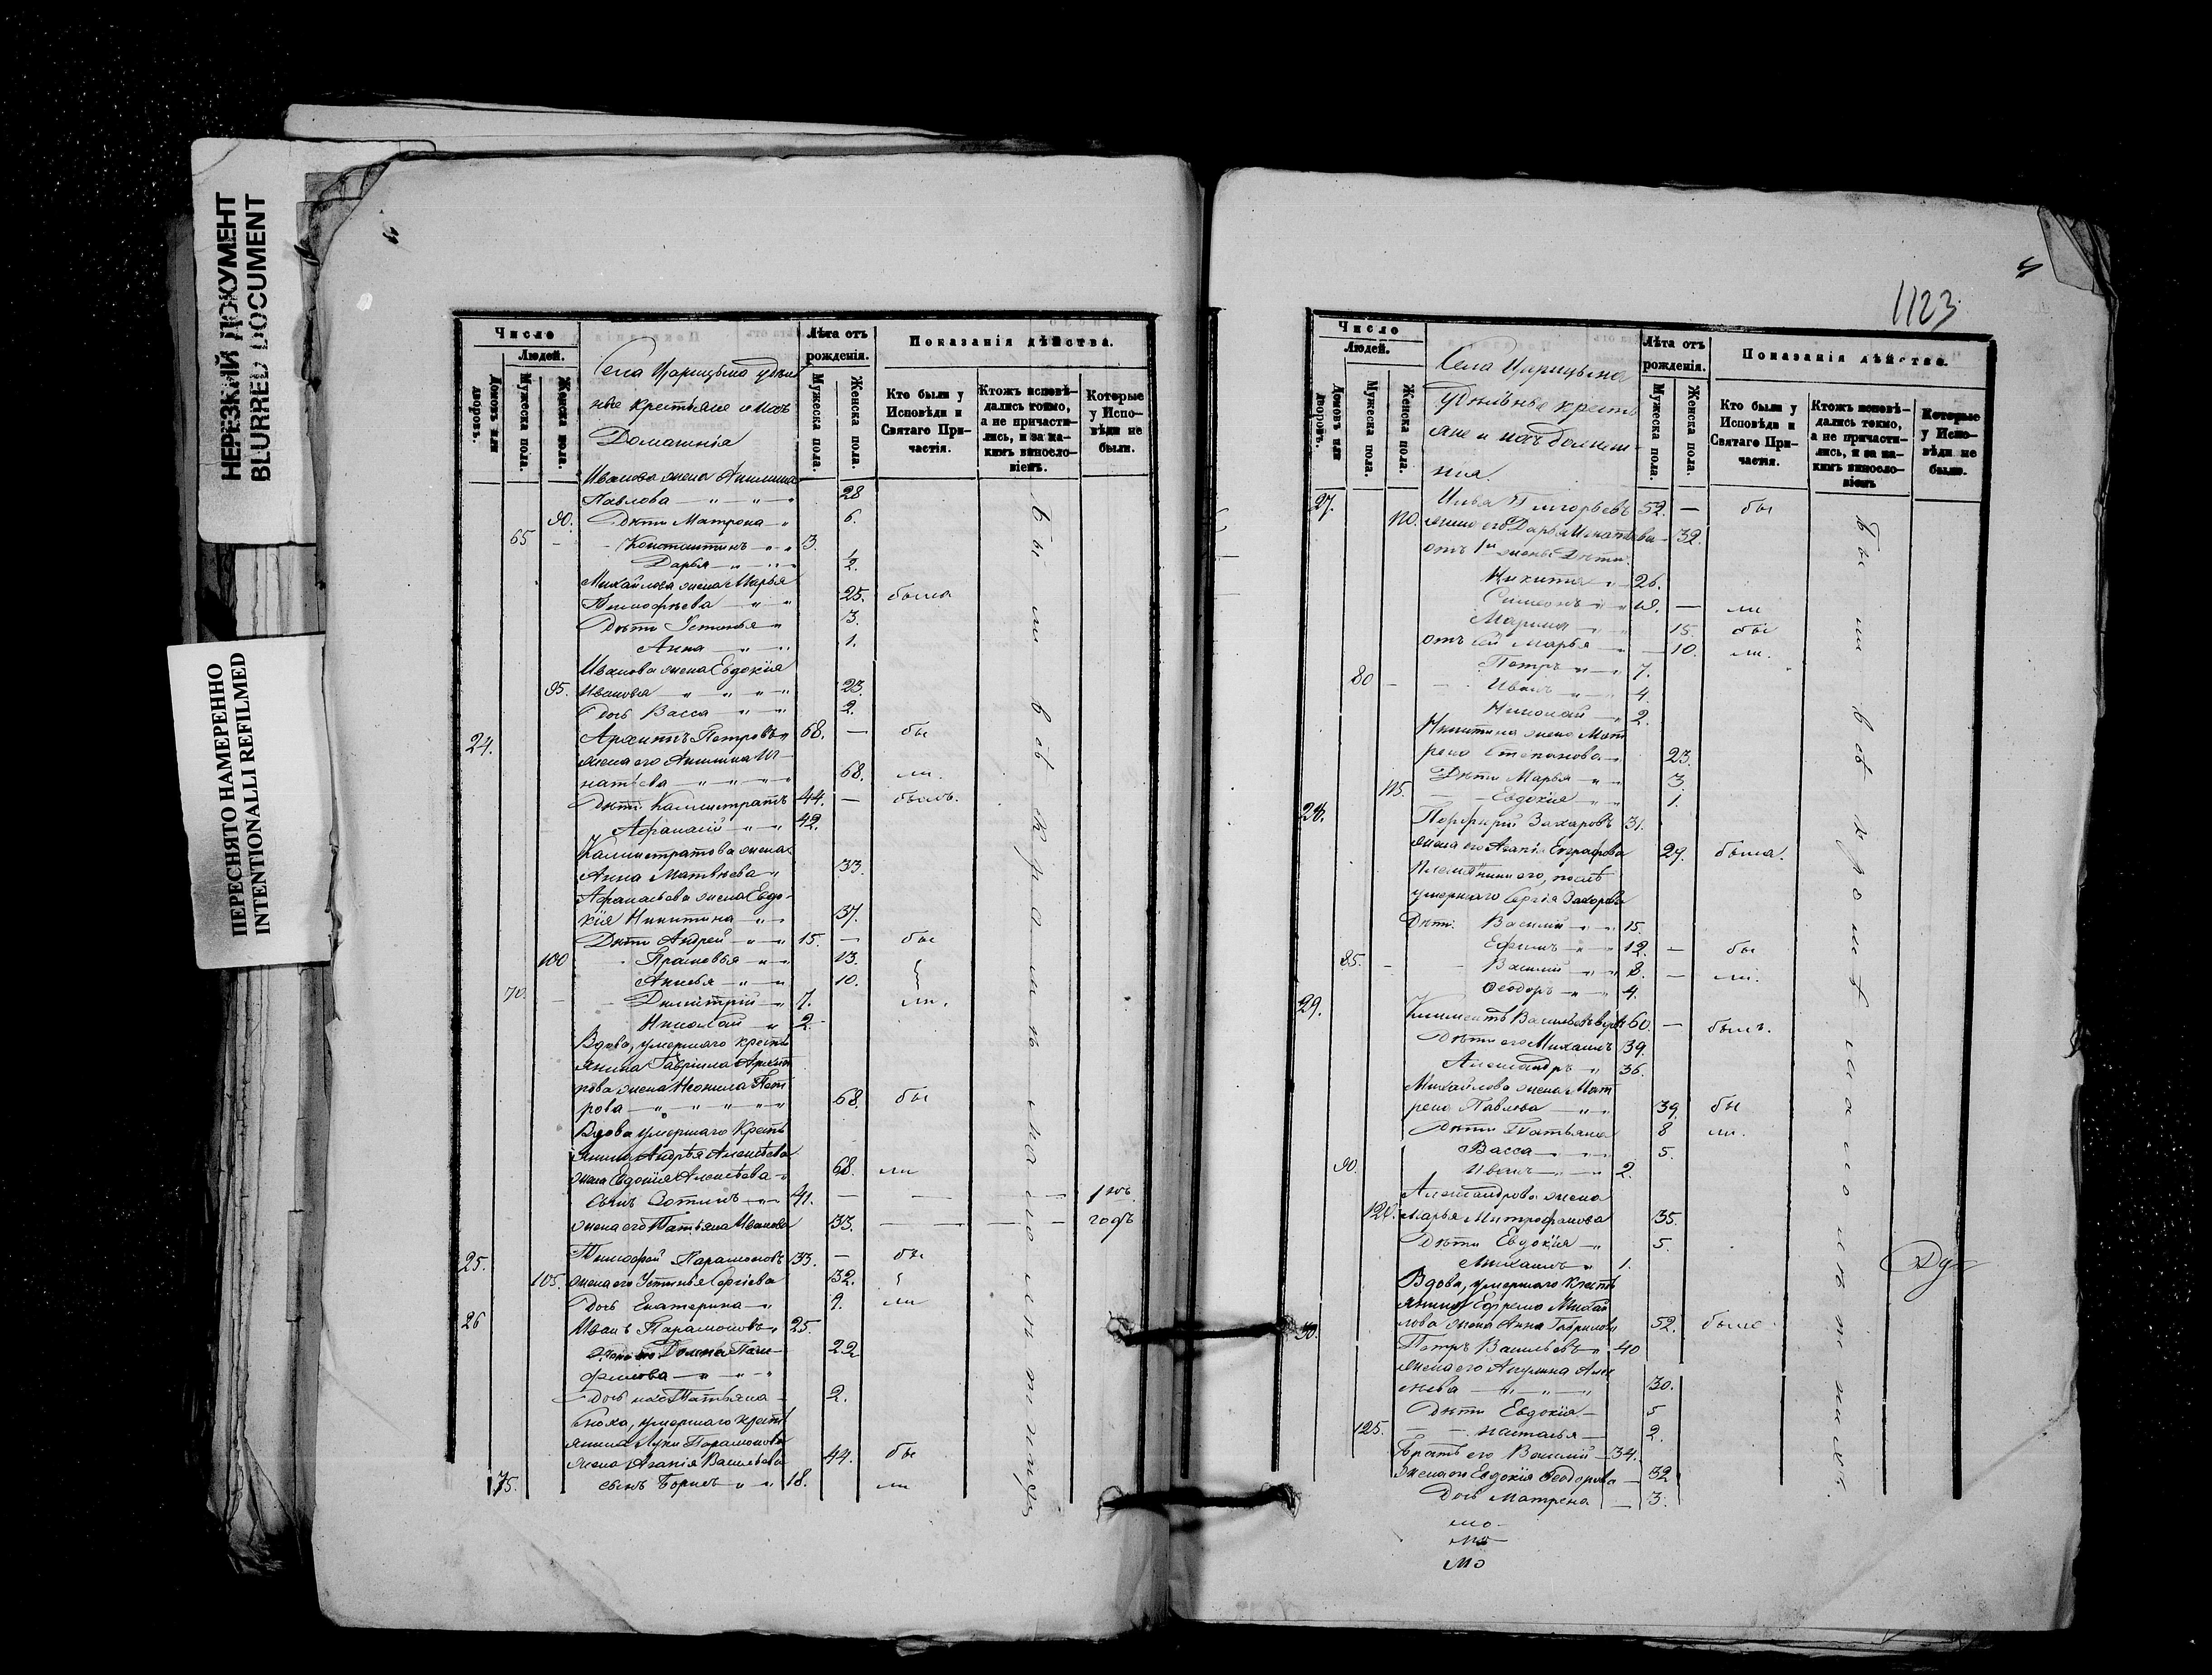 НЕРЕЗКИЙ ДОКУМЕНТ
BLURRED DOCUMENT
ПЕРЕСНЯТО НАМЕРЕННО
INTENTIONALI REFILMED
Число
Людей.
Домовъ или дворовъ.
Мужеска пола.
Женска пола.
Села Царицына удѣль
ные крестьяне и ихъ
Домашнія
Лѣта отъ рожденія.
Мужеска пола.
Женска пола.
Показанія дѣйства.
Кто были у Исповѣди и Святаго Причастія.
Ктожъ исповѣдались токмо, а не причастились, и за какимъ винословіемъ.
Которые у Исповѣди не были.
Иванова жена Акилина
Павлова 28
90. Дѣти Матрона 6.
65 Константинъ 3.
Дарья ½.
Михайлова жена Марья
Тимофѣева 25. была
Дѣти Устинья 3.
Анна 1.
Иванова жена Евдокія
95. Иванова 23.
Дочь Васса 2.
24. Архипъ Петровъ 68. — бы
жена его Акилина Иг
натьева 68. ли.
Дѣти Каллистратъ 44. — былъ.
Афанасій 42.
Калистратова жена
Анна Матвѣева 33.
Афанасьева жена Евдо-
кія Никитина 37.
Дѣти Андрей 15. — бы
100 Прасковья 13.
Анисья 10.
70. Димитрій 7. ли.
Николай 2.
Вдова, умершаго кресть
янина Гавріила Архип
пова жена Неонила Пет
рова 68. бы
Вдова умершаго Кресть
янина Андрея Алексѣева
жена Евдокія Алексѣева 68. ли
Сынъ Зотикъ 41. —
жена его Татьяна Иванова 33. годъ
25. Тимофей Парамоновъ 33. — бы
105. жена его Устинья Сергіева 32.
Дочь Екатерина 9. ли
26 Иванъ Парамоновъ 25.
Домна Пам-
филова 22
Дочь ихъ Татьяна 2.
Сноха, умершаго кресть
янина Луки Парамонова
жена Агапія Васильева 44. бы
75. сынъ Борисъ 18. ли
1123
Число
Людей.
Домовъ или дворовъ.
Мужеска пола.
Женска пола.
Села Царицына
Удѣльные кресть
яне и ихъ домаш-
нія.
Лѣта отъ рожденія.
Мужеска пола.
Женска пола.
Показанія дѣйства.
Кто были у Исповѣди и Святаго Причастія.
Ктожъ исповѣдались токмо, а не причастились, и за какимъ винословіемъ
Которые у Исповѣди не были.
27. Илья Григорьевъ 52. — бы
110. жена его Дарья Игнатьева 32.
отъ 1й жены Дѣти.
Никита 26.
Симеонъ 18. — ли
Марина 15. бы
отъ сей Марья 10. ли.
Петръ 7.
80 Иванъ 4.
Николай 2.
Никитина жена Мат
рена Степанова 23.
Дѣти Марья 3.
115. Евдокія 1.
28. Порфирій Захаровъ 31.
жена его Агапія Евграфова 29. была.
Племянники его, послѣ
умершаго Сергія Захарова
Дѣти. Василій 15.
Ефимъ 12. — бы
85. Василій 8. — ли.
Ѳеодоръ 4.
29. Климентъ Васильевъ вдовъ 60. — былъ.
Дѣти его Михаилъ 39.
Александръ 36.
Михайлова жена Мат
рена Павлова 39. бы
Дѣти Татьяна 8 ли.
Васса 5.
90. Иванъ 2.
Александрова жена
120. Марья Митрофанова 35.
Дѣти Евдокія 5.
Михаилъ 1.
Вдова, умершаго кресть
янина Ефрема Михай
лова жена Анна Гаврилова 52. была
30. Петръ Васильевъ 40
жена его Акулина Алек
сѣева 30.
Дѣти Евдокія 5
125. Наталья 2.
Братъ его Василій 34.
жена его Евдокія Ѳеодорова 32
Дочь Матрена 3.
мо
мо
мо